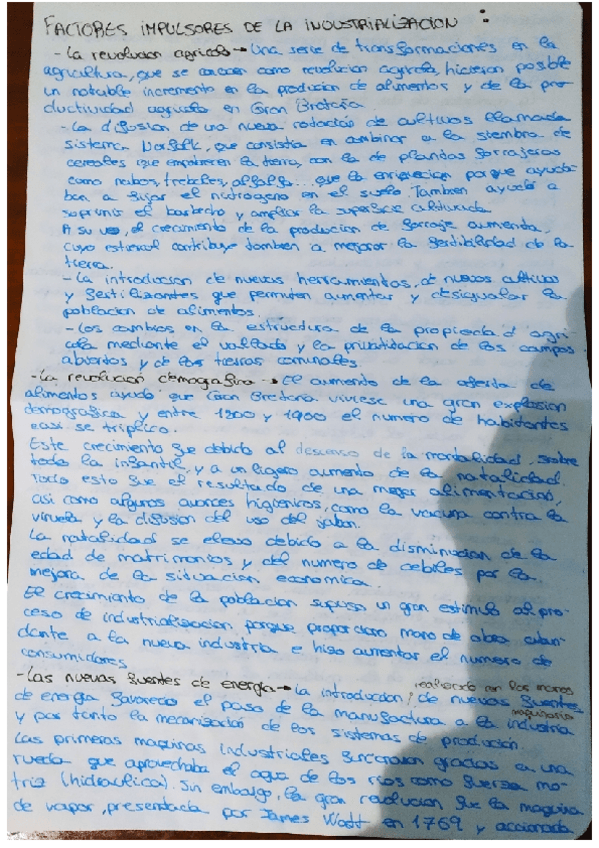 FACTORES IMPULSORES DE LA INDUSTRIALIZACION :
- La revolucion agricola → Una serie de transformaciones en la
agricultura, que se conocen como revolucion agricola, hicieron posible
un notable incremento en la producion de alimentos y de la pro-
ductividad agricola en Gran Bretaña
- La difusion de una nueva rotacion de cultivos llamada
sistema Norfolk, que consistia en combinar a la siembra de
cereales que empobrecen la tierra, con la de plantas forrajeras
como nabos, treboles, alfalfa... que la enriquecian porque ayuda-
ban a fijar el nitrogeno en el suelo. Tambien ayudó a
suprimir el barbecho y ampliar la superficie cultivada
A su vez, el crecimiento de la producion de forraje aumenta,
cuyo estiercol contribuye tambien a mejorar la fertibilidad de la
tierra.
- La introduccion de nuevas herramientas, de nuevos cultivos
y fertilizantes que permiten aumentar y desigualar la
poblacion de alimentos.
- Los cambios en la estructura de la propiedad agri-
cola mediante el vallado y la privatizacion de los campos
abiertos y de las tierras comunales.
- La revolucion demografica → El aumento de la oferta de
alimentos ayudó que Gran Bretaña viviese una gran explosion
demografica y entre 1800 y 1900 el numero de habitantes
casi se triplico.
Este crecimiento fue debido al descenso de la mortalidad, sobre
todo la infantil, y a un ligero aumento de la natalidad
Todo esto fue el resultado de una mejor alimentacion,
asi como algunos avances higienicos, como la vacuna contra la
viruela y la difusion del uso del jabon.
La natalidad se elevo debido a la disminucion de la
edad de matrimonios y del numero de celibes por la
mejora de la situacion economica.
El crecimiento de la poblacion supuso un gran estimulo al pro-
ceso de industrializacion porque proporciono mano de obra abun-
dante a la nueva industria e hizo aumentar el numero de
consumidores
- Las nuevas fuentes de energia → La introduccion, de nuevas fuentes
de energia favorecio el paso de la manufactura a la industria
y por tanto la mecanización de los sistemas de producion.
Las primeras maquinas industriales funcionaron gracias a una
rueda que aprovechaba el agua de los rios como fuerza mo-
triz (hidraulica). Sin embargo, la gran revolucion fue la maquina
de vapor, presentada por James Watt en 1769 y accionada